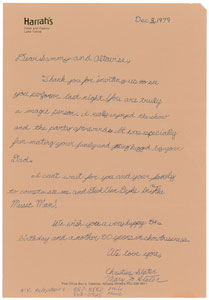 Harrah's
Hotel and Casino
Lake Tahoe
Dec 8, 1979
Dear Sammy and Altovise,
Thank you for inviting us to see
you perform last night. You are truly
a magic person. I really enjoyed the show
and the party afterwards. It was especially
for meeting your family and your
Dad.
I can't wait for you and your family
to come see me and Dick Van Dyke in the
Music Man!
We wish you a very happy
birthday and another 50 years in show business.
We love you,
Christian Slater
Mary Jo Slater